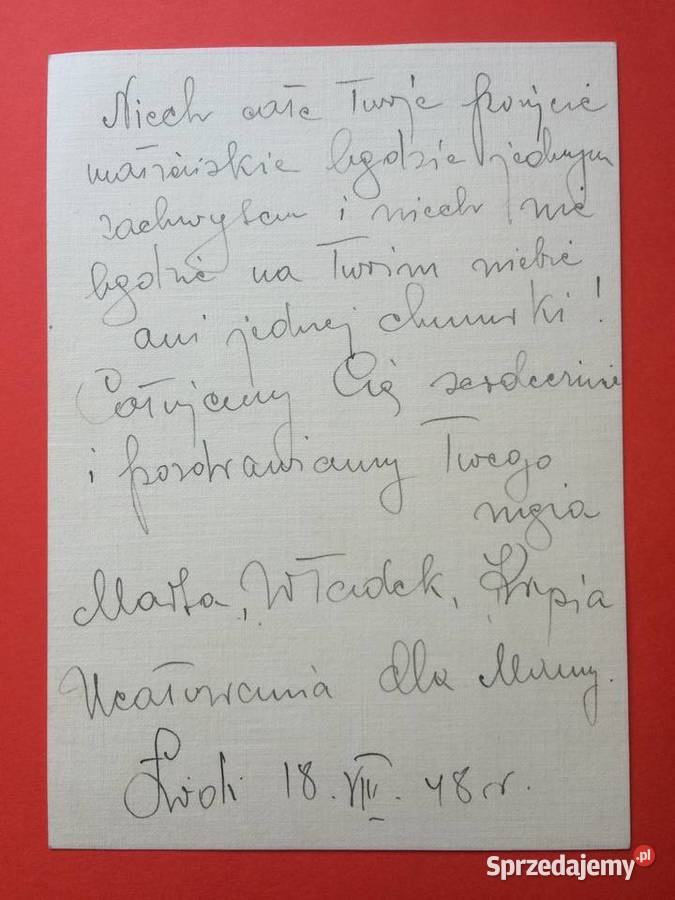 Niech całe Twoje pożycie
małżeńskie będzie jednym
zachwytem i niech nie
będzie na Twoim niebie
ani jednej chmurki!
Całujemy Cię serdecznie
i pozdrawiamy Twego
męża
Marta, Władek,
Ucałowania dla Mamy.
Łódź 18. VIII. 48 r.
Sprzedajemy.pl